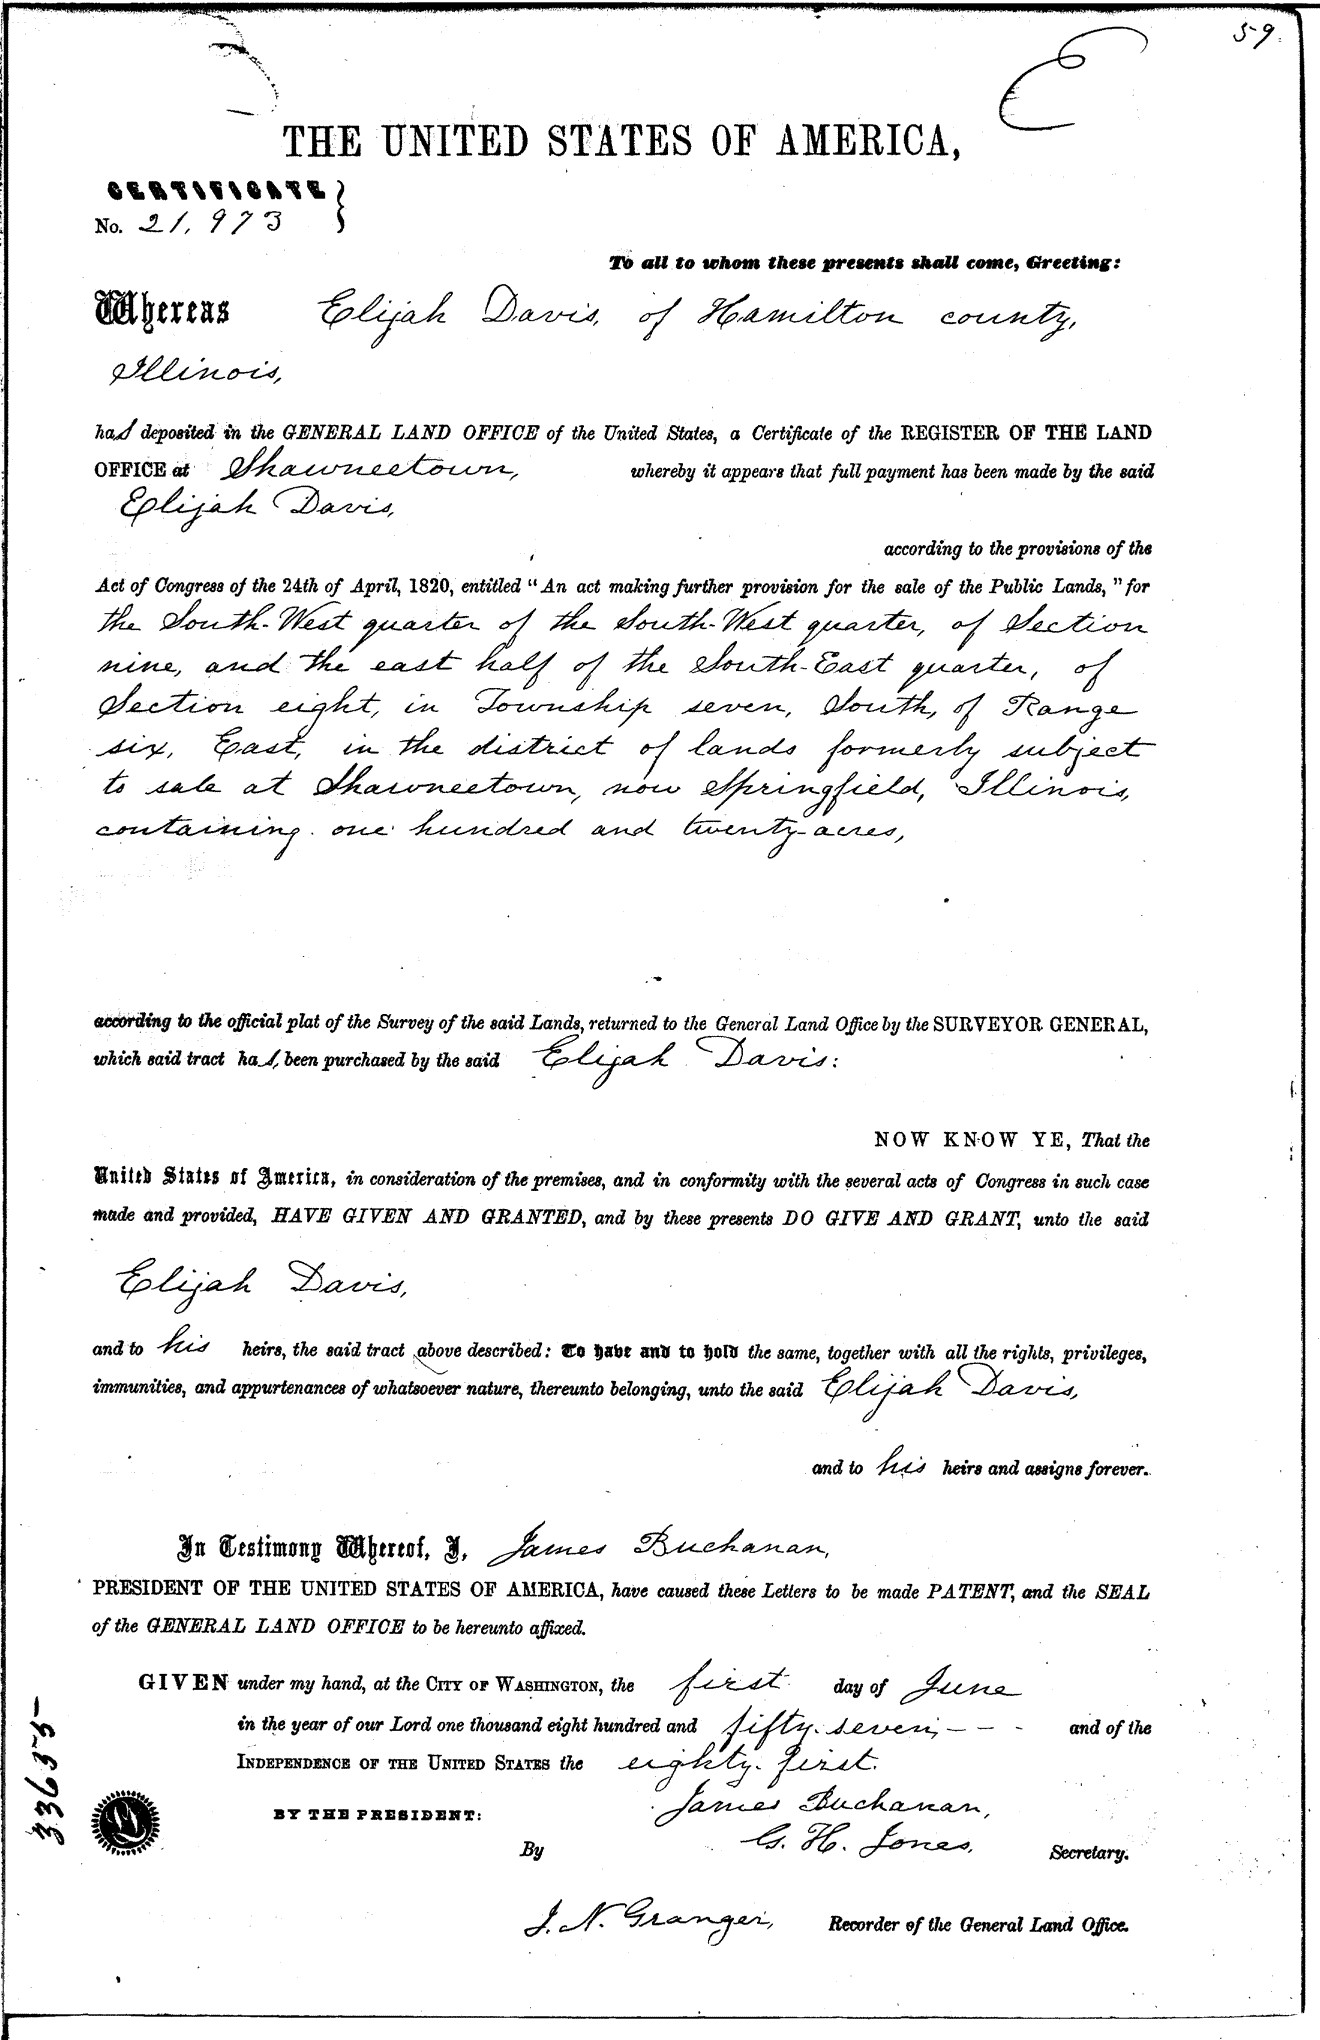 59.
THE UNITED STATES OF AMERICA,
CERTIFICATE
No. 21,973
To all to whom these presents shall come, Greeting:
Whereas Elijah Davis, of Hamilton county,
Illinois,
has deposited in the GENERAL LAND OFFICE of the United States, a Certificate of the REGISTER OF THE LAND
OFFICE at Shawneetown, whereby it appears that full payment has been made by the said
Elijah Davis,
according to the provisions of the
Act of Congress of the 24th of April, 1820, entitled "An act making further provision for the sale of the Public Lands," for
the South-West quarter of the South-West quarter, of Section
nine, and the east half of the South-East quarter, of
Section eight, in Township seven, South, of Range
six, East, in the district of lands formerly subject
to sale at Shawneetown, now Springfield, Illinois,
containing one hundred and twenty acres,
according to the official plat of the Survey of the said Lands, returned to the General Land Office by the SURVEYOR GENERAL,
which said tract has been purchased by the said Elijah Davis:
NOW KNOW YE, That the
United States of America, in consideration of the premises, and in conformity with the several acts of Congress in such case
made and provided, HAVE GIVEN AND GRANTED, and by these presents DO GIVE AND GRANT, unto the said
Elijah Davis,
and to his heirs, the said tract above described: To have and to hold the same, together with all the rights, privileges,
immunities, and appurtenances of whatsoever nature, thereunto belonging, unto the said Elijah Davis,
and to his heirs and assigns forever.
In Testimony Whereof, I, James Buchanan,
PRESIDENT OF THE UNITED STATES OF AMERICA, have caused these Letters to be made PATENT, and the SEAL
of the GENERAL LAND OFFICE to be hereunto affixed.
GIVEN under my hand, at the CITY OF WASHINGTON, the first day of June
in the year of our Lord one thousand eight hundred and fifty seven, - - - and of the
INDEPENDENCE OF THE UNITED STATES the eighty-first.
BY THE PRESIDENT: James Buchanan,
By G. H. Jones, Secretary.
J. N. Granger, Recorder of the General Land Office.
33635